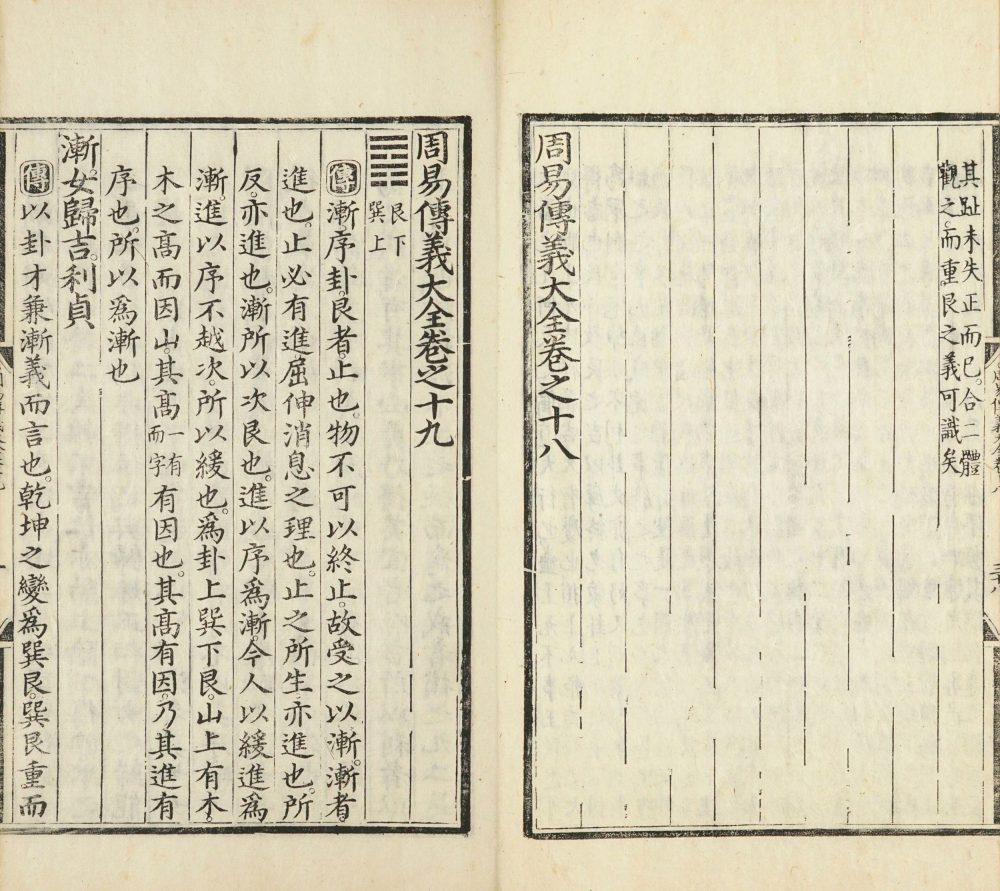 其趾未失正而已。合二體
觀之。而重艮之義可識矣
周易傳義大全卷之十八
周易傳義大全卷之十九
艮下
巽上
傳漸序卦。艮者。止也。物不可以終止。故受之以漸。漸者。
進也。止必有進屈伸消息之理也。止之所生。亦進也。所
反。亦進也。漸所以次艮也。進以序爲漸。今人以緩進爲
漸。進以序不越次。所以緩也。爲卦上巽下艮。山上有木。
木之高而因山。其高一有而字有因也。其高有因。乃其進有
序也。所以爲漸也
漸。女歸吉。利貞
傳以卦才兼漸義而言也。乾坤之變爲巽艮。巽艮重而